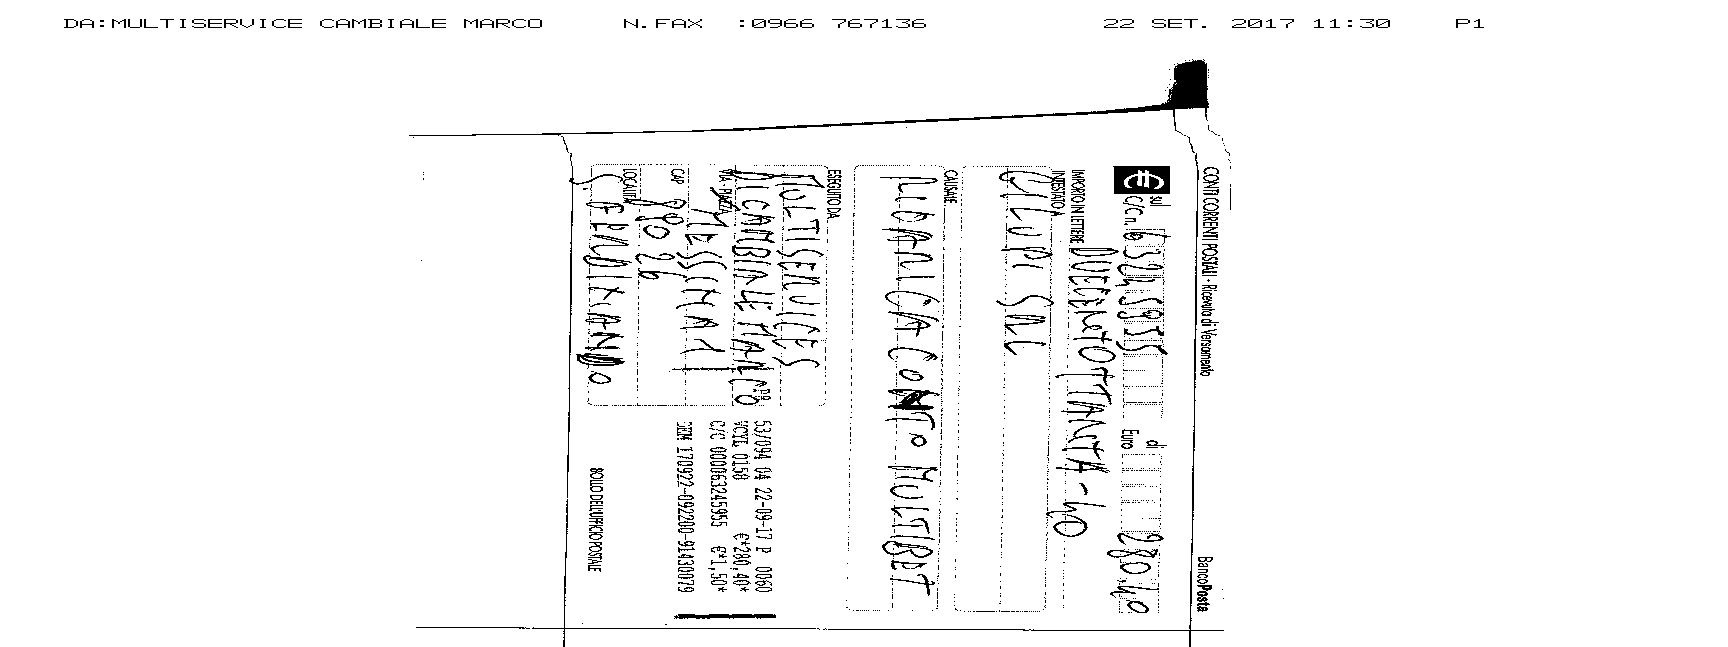 DA:MULTISERVICE CAMBIALE MARCO N.FAX :0966 767136 22 SET. 2017 11:30 P1
CONTI CORRENTI POSTALI - Ricevuta di Versamento BancoPosta
€ sul C/C n. 63245955 di Euro 280,40
IMPORTO IN LETTERE DUECENTOTTANTA-40
INTESTATO A
SRL
CAUSALE
RICARICA CONTO MULTIBET
ESEGUITO DA
MULTISERVICES
DI CAMBIALE MARCO
VIA - PIAZZA MESSINA 1
CAP 89026
LOCALITÀ S. FERDINANDO
53/094 04 22-09-17 P 0060
VCYL 0150 €*280,40*
C/C 000063245955 €*1,50*
170922-092200-91430079
BOLLO DELL'UFFICIO POSTALE